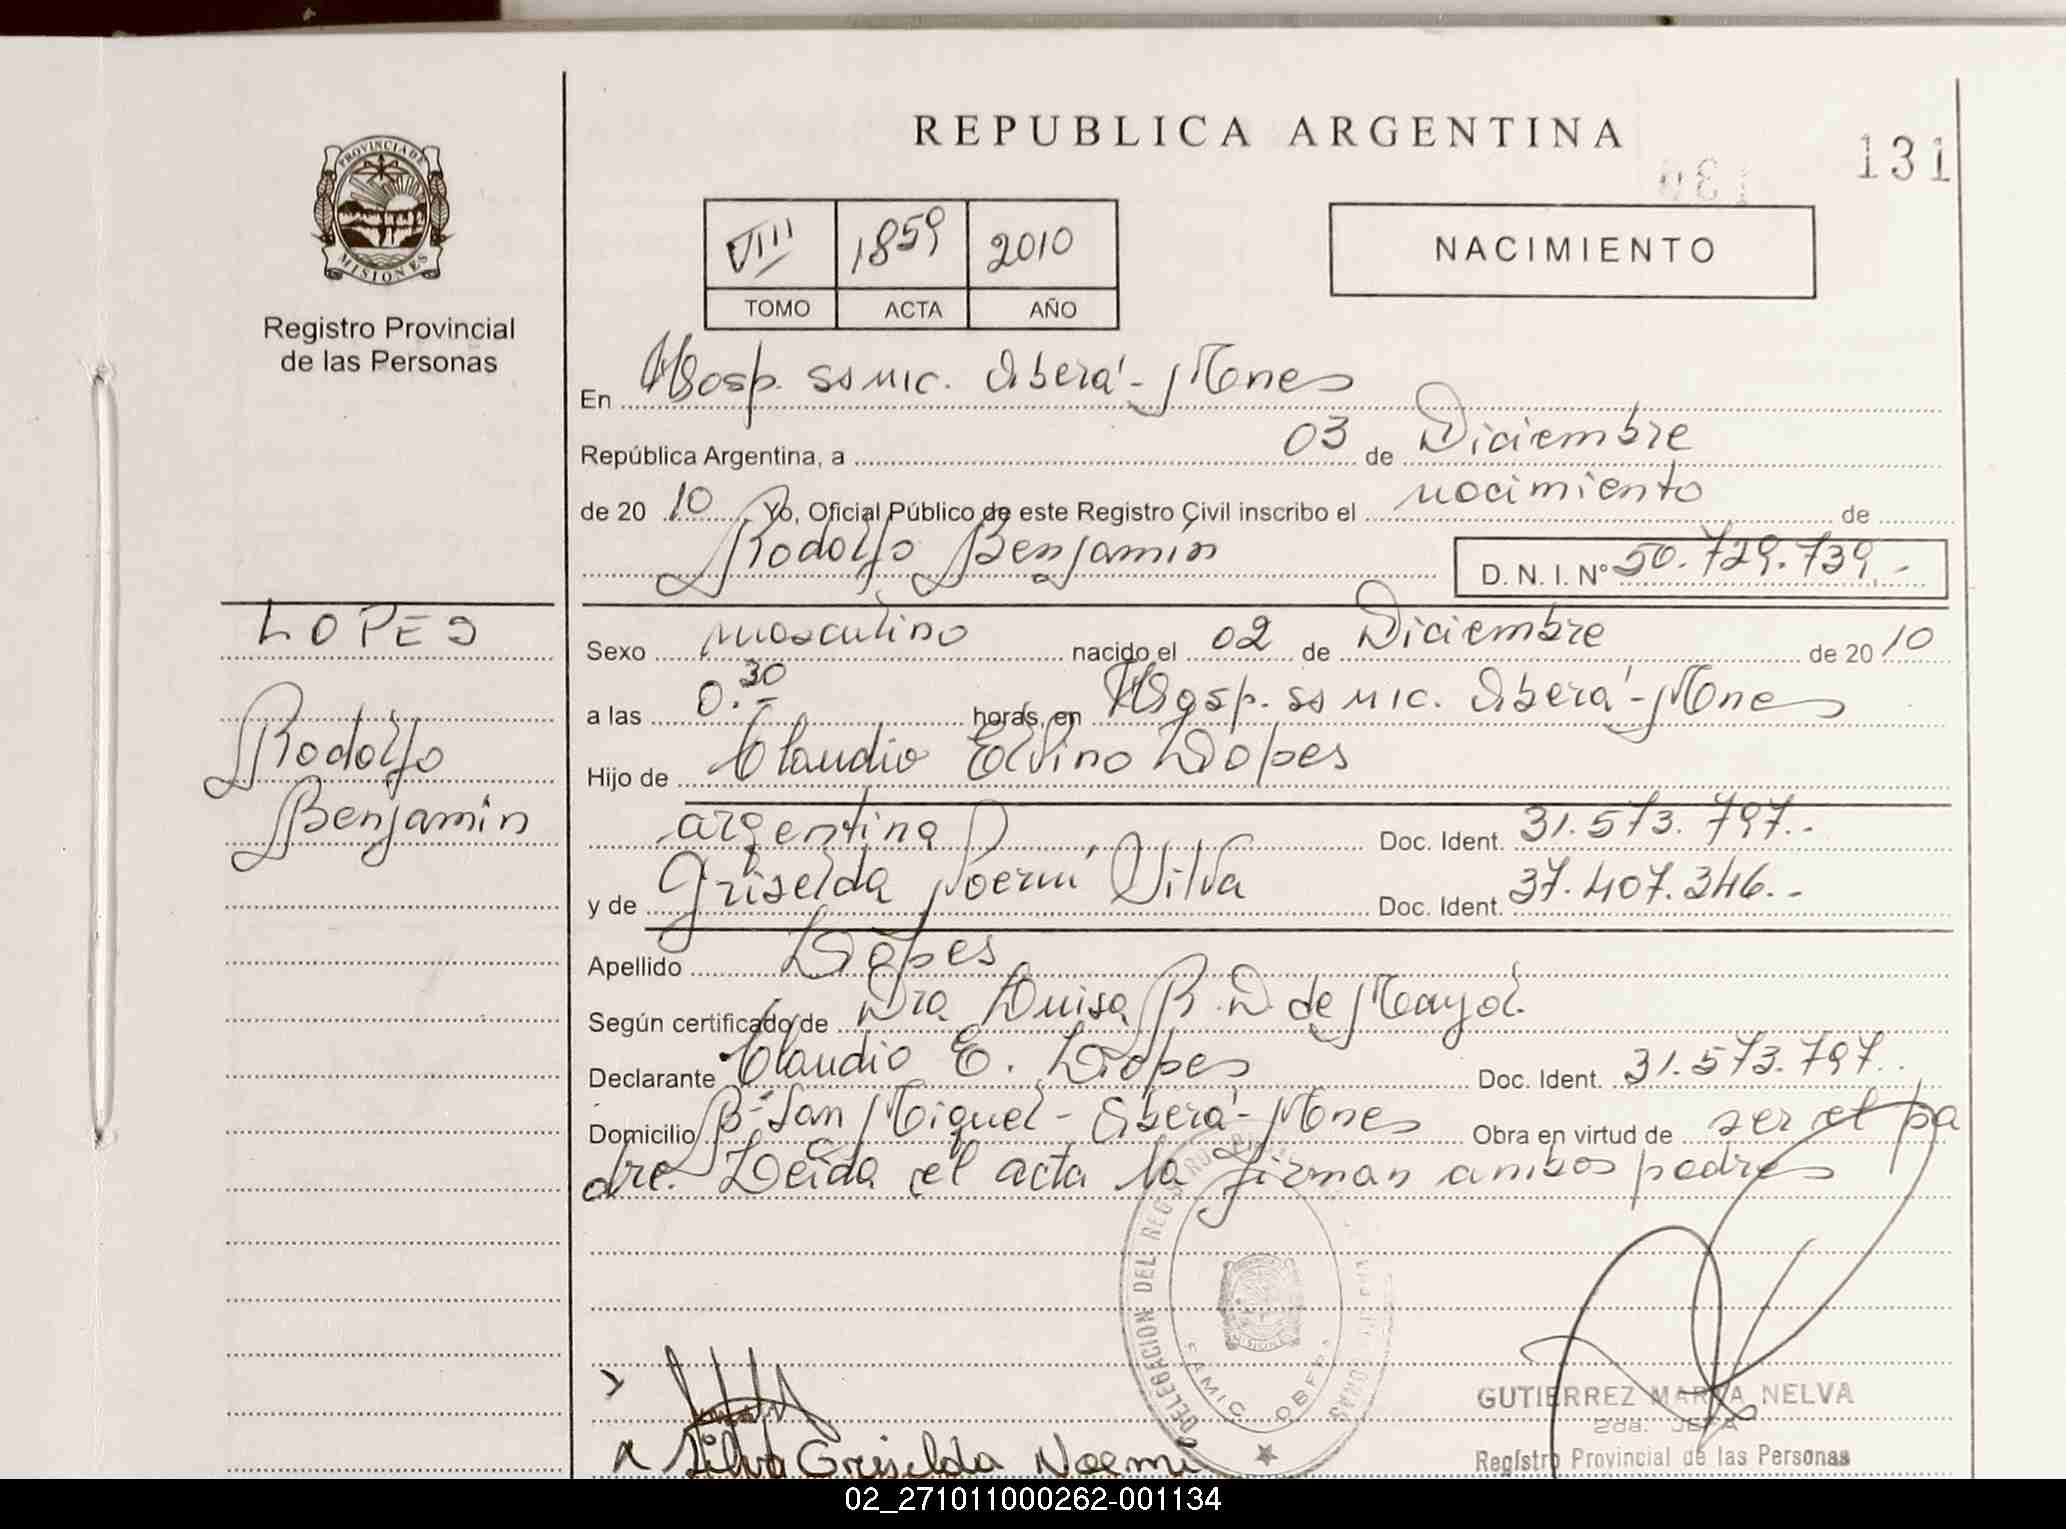 PROVINCIA DE
MISIONES
Registro Provincial
de las Personas
LOPES
Rodolfo
Benjamín
REPUBLICA ARGENTINA
131
VIII 1859 2010
TOMO ACTA AÑO
NACIMIENTO
En Hosp. SAMIC. Oberá - Mnes
República Argentina, a 03 de Diciembre
de 20 10 Yo, Oficial Público de este Registro Civil inscribo el nacimiento de
Rodolfo Benjamín D. N. I. Nº 50.729.739.-
Sexo masculino nacido el 02 de Diciembre de 20 10
a las 0.30 horas, en Hosp. SAMIC. Oberá - Mnes
Hijo de Claudio Elvino Lopes
argentina Doc. Ident. 31.573.797.-
y de Griselda Noemí Silva Doc. Ident. 37.407.346.-
Apellido Lopes
Según certificado de Dra Luisa R. D. de Mayol
Declarante Claudio E. Lopes Doc. Ident. 31.573.797.
Domicilio Bº San Miguel - Oberá - Mnes Obra en virtud de ser el pa
dre. Leída el acta la firman ambos padres
DELEGACION DEL REGISTRO
SAMIC OBERA
Silva Griselda Noemi
GUTIERREZ MARTA NELVA
2da. JEFA
Registro Provincial de las Personas
02_271011000262-001134